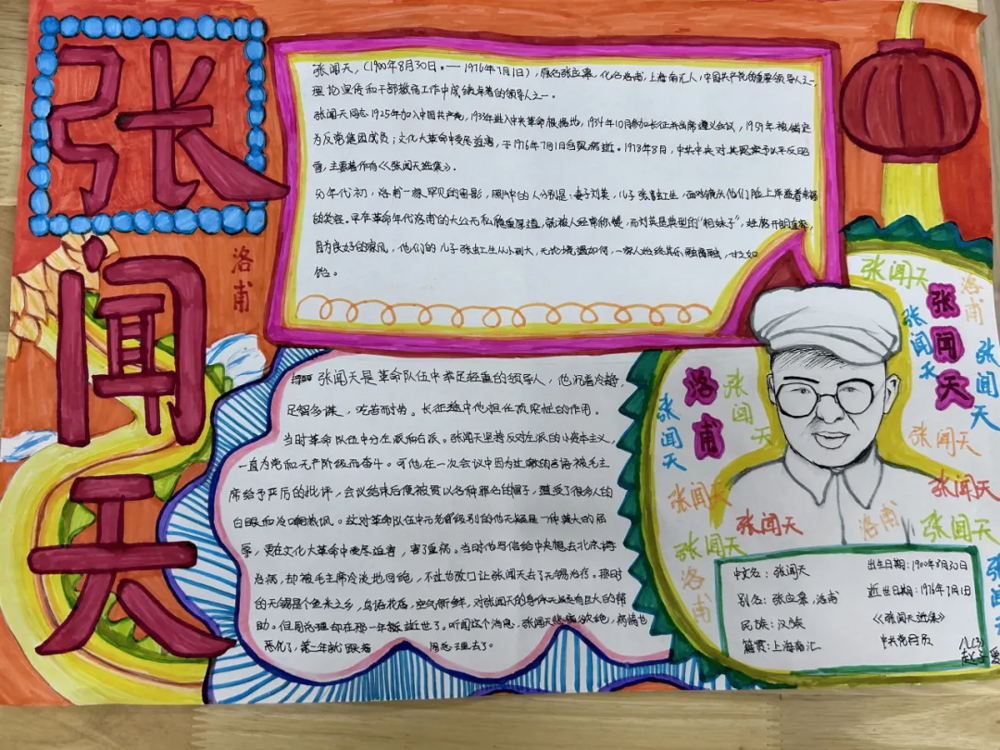 张闻天
洛甫
张闻天，(1900年8月30日。——1976年7月1日)，原名张应皋，化名洛甫，上海南汇人，中国共产党的重要领导人之一
理论宣传和干部教育工作中成绩卓著的领导人之一。
张闻天同志1925年加入中国共产党，1933年进入中央革命根据地，1934年10月参加长征并出席遵义会议，1959年被错定
为反党集团成员；文化大革命中受尽迫害，于1976年7月1日含冤病逝。1978年8月，中共中央对其冤案予以平反昭
雪，主要著作有《《张闻天选集》。
50年代初，洛甫一家罕见的合影，照片中的人分别是：妻子刘英，儿子张虹生，面对镜头他们脸上洋溢着幸福
的笑容。早在革命年代洛甫的大公无私
因为良好的家风，他们的儿子张虹生从小到大，无论境遇如何，一家人始终其乐融融，甘之如
饴。
张闻天是革命队伍中举足轻重的领导人，他沉着冷静，
足智多谋，吃苦耐劳。长征途中他担任顶梁柱的作用。
当时革命队伍中分左派和右派。张闻天坚持反对左派的小资本主义，
一直为党和无产阶级而奋斗。可他在一次会议中因为过激的言语被毛主
席给予严厉的批评，会议结束后便被贯以各种罪名的帽子，遭受了很多人的
白眼和冷嘲热讽。这对革命队伍中元老级级别的他无疑是一件莫大的屈
辱，更在文化大革命中受尽迫害，害了重病。当时他写信给中央想去北京
治病，却被毛主席冷淡地回绝，不过也改口让张闻天去了无锡治疗。那时
的无锡是个鱼米之乡，鸟语花香，空气新鲜，对张闻天的身体无疑有巨大的帮
助。但周总理却在那一年逝世了。听闻这个消息，张闻天悲痛欲绝，病情也
恶化了，第二年就跟着周总理去了。
张闻天
洛甫
张闻天
张闻天
张闻天
洛甫
张闻天
张闻天
张闻天
张闻天
张闻天
张闻天
张闻天
洛甫
张闻天
张闻天
洛甫
中文名：张闻天
出生日期：1900年8月30日
别名：张应皋，洛甫
逝世日期：1976年7月1日
民族：汉族
《《张闻天选集》
籍贯：上海南汇
中共党员
八(3)